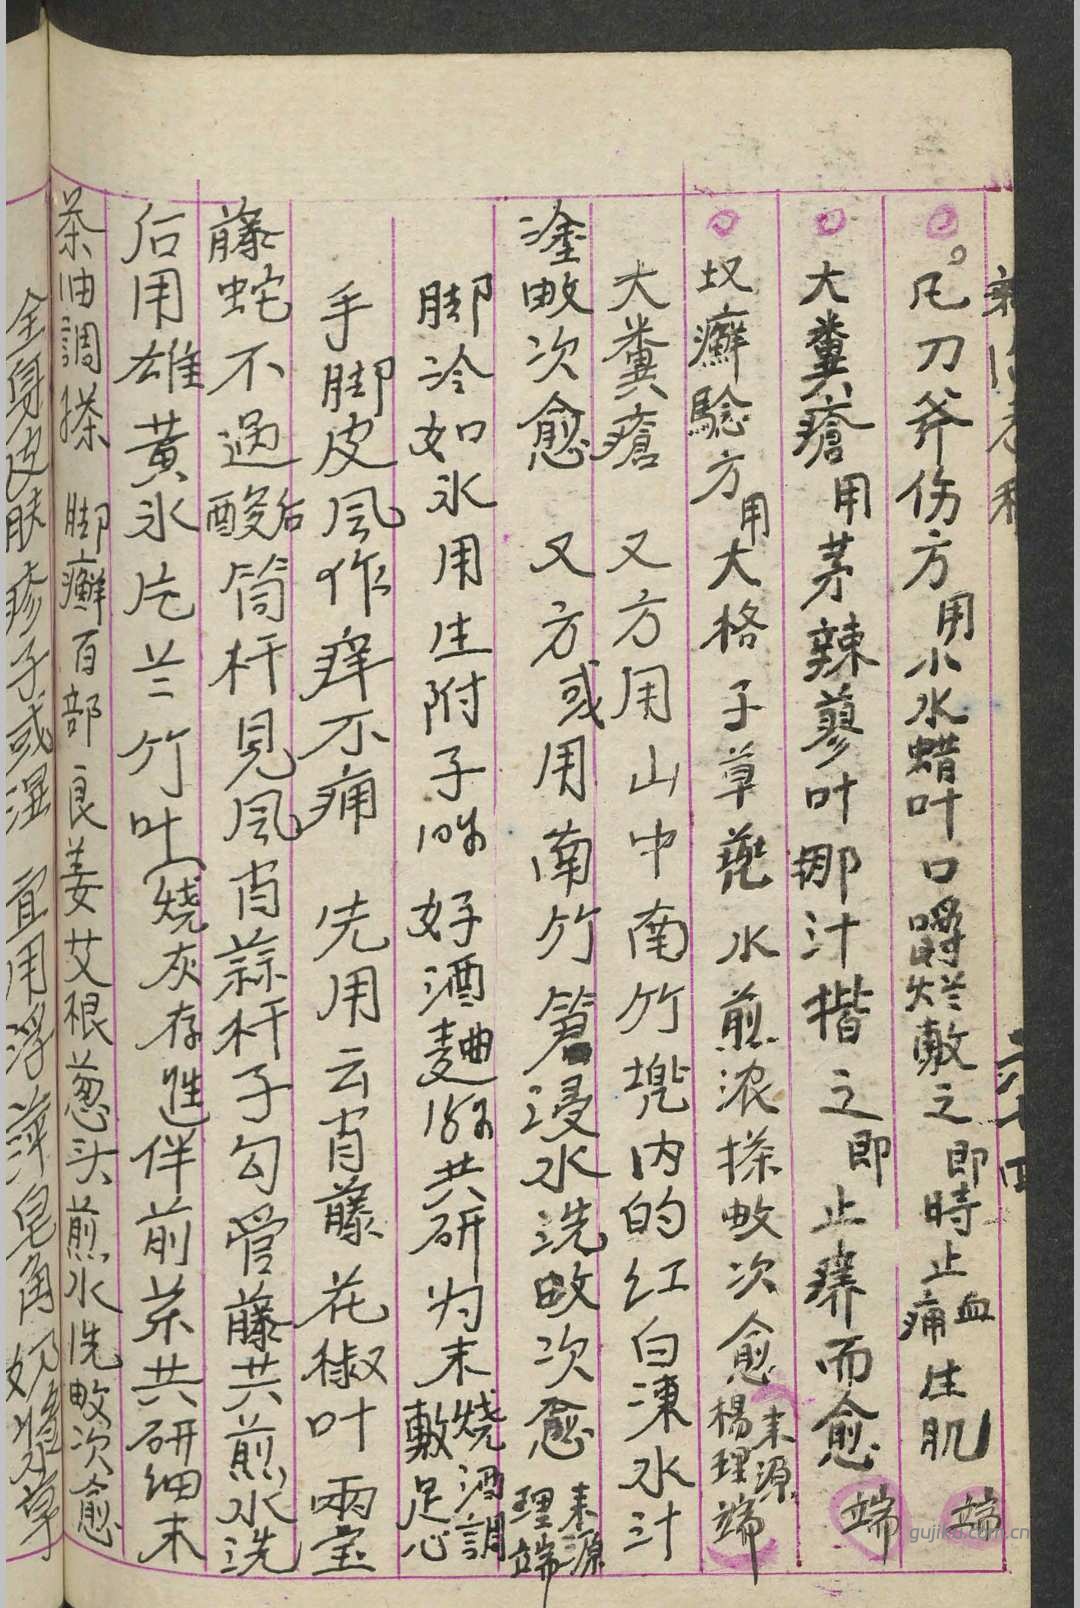 凡刀斧伤方用小水蜡叶口嚼烂敷之即時止血痛生肌 端
大糞瘡用茅辣蓼叶挪汁揩之即止痒而愈 端
癬驗方用大格子草蔸水煎浓搽数次愈 来源楊理端
大糞瘡 又方用山中南竹蔸内的红白凍水汁
塗数次愈 又方或用南竹箬浸水洗数次愈 来源理端
脚冷如氷用生附子 好酒麯 共研为末燒酒調敷足心
手脚皮风作痒不痛 先用云肖藤花椒叶兩宝
藤蛇不過酸后筒杆見风肖蒜杆子勾管藤共煎水洗
后用雄黃氷片兰竹叶(燒灰存性伴前茶共研细末
茶油調搽 脚癬百部良姜艾根葱头煎水洗数次愈
全身皮肤疹子或濕 宜用浮萍皂角 草
gujika.com.cn